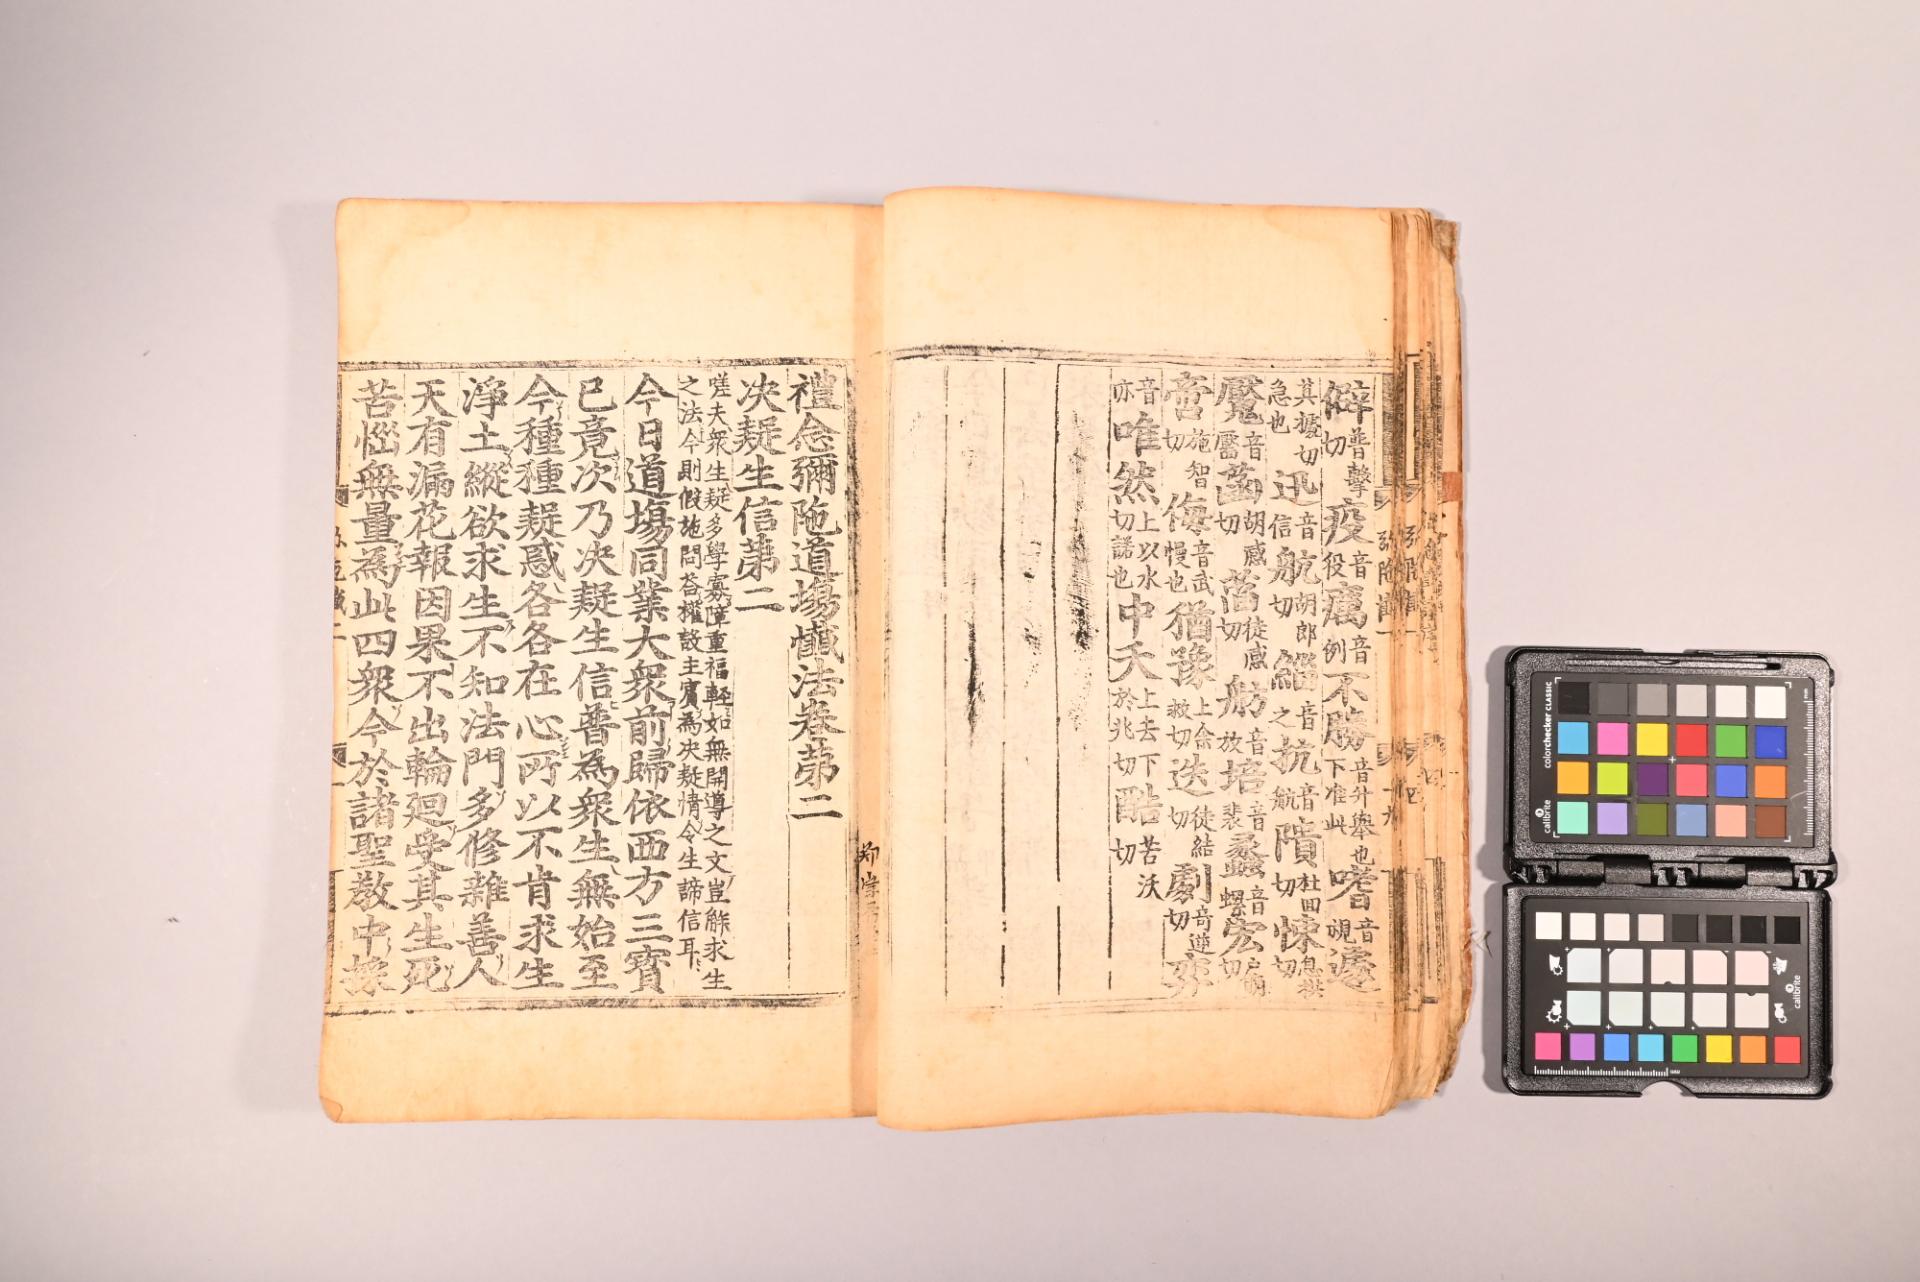 僻普擊切疫音役癘音例不勝音升舉也下准此嗜音視遽
其據切急也迅音信航胡郎切緇音之抗音航隤杜回切悚息拱切
魘音黶菡胡感切萏徒感切舫音放培音裴蠡音螺宏戶萌切
啻施智切侮音武慢也猶豫上余救切迭徒結切劇奇逆切奕
音亦唯然上以水切諾也中夭上去下於兆切酷苦沃切
禮念彌陁道場懺法卷第二
決疑生信第二
嗟夫衆生疑多學寡障重福輕如無開導之文豈能求生
之法今則假施問荅權設主賓為決疑情令生諦信耳
今日道場同業大衆前歸依西方三寶
已竟次乃決疑生信普為衆生無始至
今種種疑惑各各在心所以不肯求生
淨土縱欲求生不知法門多修雜善人
天有漏花報因果不出輪廻受其生死
苦惱無量為此四衆今於諸聖教中採
colorchecker CLASSIC
calibrite
calibrite